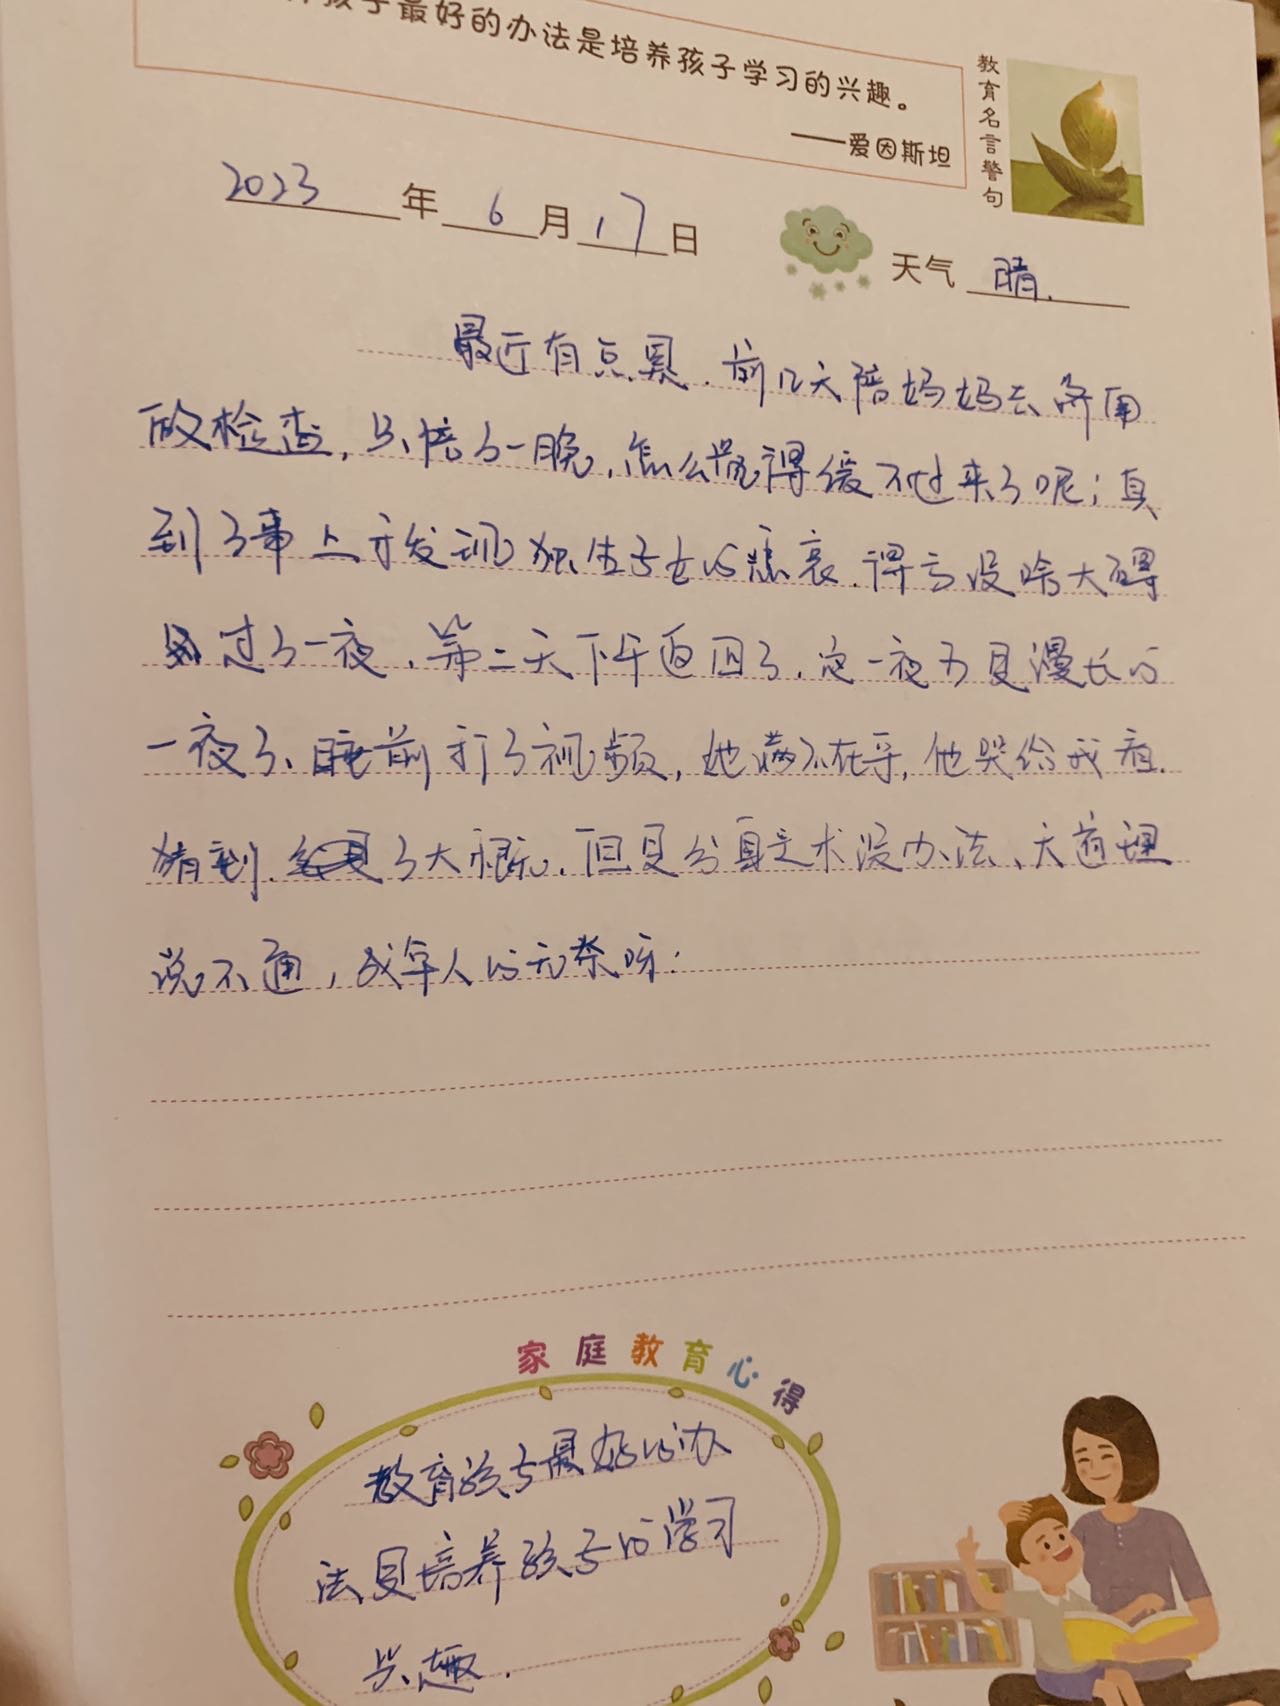 孩子最好的办法是培养孩子学习的兴趣。
——爱因斯坦
教育名言警句
2023年6月17日
天气 晴.
最近有点累.前几天陪妈妈去济南
做检查,只陪了一晚,怎么觉得缓不过来了呢;真
到了事上才发现独生子女的悲哀.得亏没啥大碍
过了一夜.第二天下午返回了.这一夜可是漫长的
一夜了、睡前打了视频,她满不在乎,他哭给我看.
猜到.了大概.但是分身乏术没办法、大道理
说不通,成年人的无奈呀:
家庭教育心得
教育孩子最好的办
法是培养孩子的学习
兴趣.